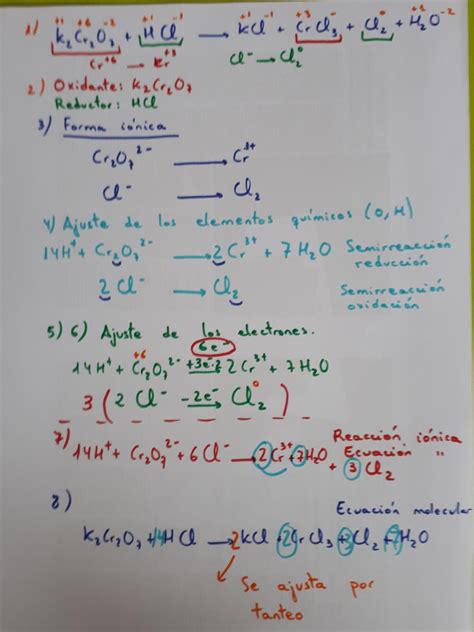 +1 +6 -2 +1 -1 +1 -1 +3 -1 0 +1 -2
1) K₂Cr₂O₇ + HCl ⟶ KCl + CrCl₃ + Cl₂ + H₂O
Cr⁺⁶ ⟶ Kr⁺³ Cl⁻ → Cl₂⁰
2) Oxidante: K₂Cr₂O₇
Reductor: HCl
3) Forma iónica
Cr₂O₇²⁻ ⟶ Cr³⁺
Cl⁻ ⟶ Cl₂
4) Ajuste de los elementos químicos (O, H)
14H⁺ + Cr₂O₇²⁻ ⟶ 2Cr³⁺ + 7H₂O Semirreacción
reducción
2Cl⁻ ⟶ Cl₂ Semirreacción
oxidación
5) 6) Ajuste de los electrones.
6e⁻
14H⁺ + Cr₂O₇²⁻ +3e⁻·2⟶ 2Cr³⁺ + 7H₂O
+6
3 ( 2Cl⁻ -2e⁻⟶ Cl₂⁰ )
7) Reacción iónica
14H⁺ + Cr₂O₇²⁻ + 6Cl⁻ ⟶ 2Cr³⁺ + 7H₂O Ecuación "
+ 3Cl₂
8) Ecuación molecular
K₂Cr₂O₇ + 14HCl ⟶ 2KCl + 2CrCl₃ + 3Cl₂ + 7H₂O
Se ajusta por
tanteo